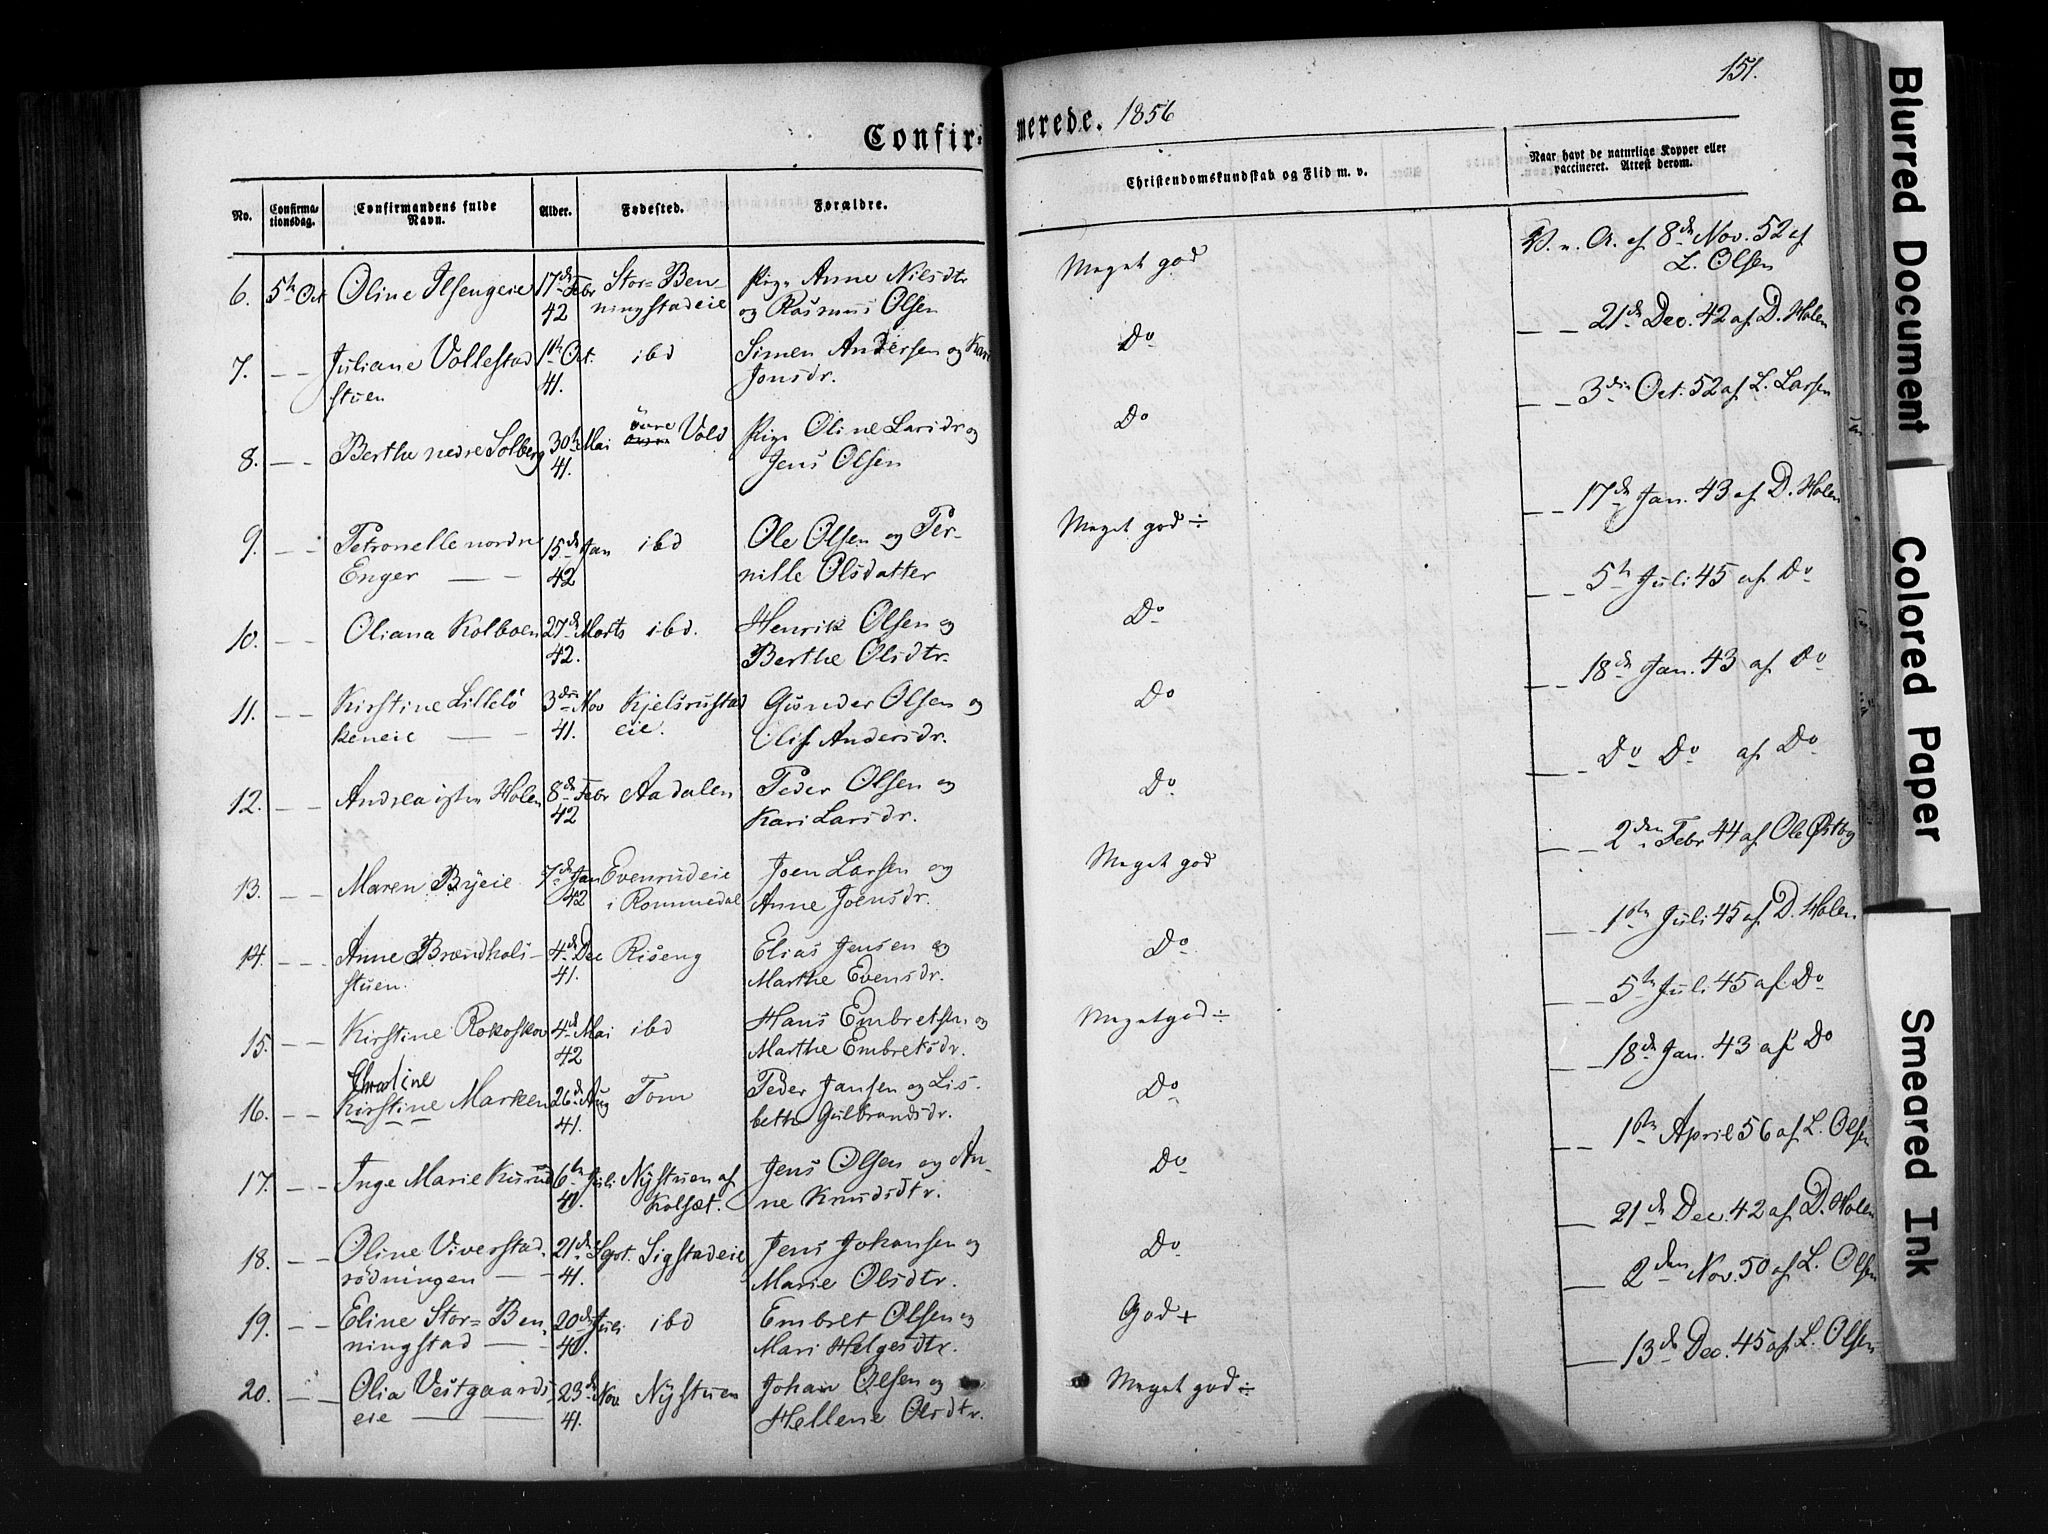 151.
Confirmerede. 1856
No.
Confirma-
tionsdag.
Confirmandens fulde
Navn.
Alder.
Fødested.
Forældre.
Christendomskundskab og Flid m. v.
Naar havt de naturlige Kopper eller
vaccineret. Attest derom.
6. 5te Oct Oline Ilsengeie 17de Febr Stor=Ben- Pige Anne Nilsdtr Meget god V. n. A. af 8de Nov. 52 af
42 ningstadeie og Rasmus Olsen L. Olsen
7. — — Juliane Vollestad 1ste Oct. ibd Simen Andersen og Kari Do — — 21de Dec. 42 af D. Holen
stuen 41. Jonsdr.
8. — — Berthe nedre Solberg 30te Mai övre Vold Pige Oline Larsdr og Do — — 3die Oct. 52 af L. Larsen
41. Jens Olsen
9. — — Petronelle nordre 15de Jan ibd Ole Olsen og Per- Meget god ÷ — — 17de Jan. 43 af D. Holen
Enger — — 42 nille Olsdatter
10. — — Oliana Kolboen 27de Marts ibd. Henrik Olsen og Do — — 5te Juli 45 af Do
42. Berthe Olsdtr.
11. — — Kirstine Lillelö 3die Nov Kjelsrustad Gunder Olsen og Do — — 18de Jan. 43 af Do
keneie — — 41. eie. Olif. Andersdr.
12. — — Andrea Holen 8de Febr Aadalen Peder Olsen og Do — — Do Do af Do
42 Kari Larsdr.
13. — — Maren Byeie 7de Jan Evenrudeie Joen Larsen og Meget god — — 2den Febr 44 af Ole
42 i Rommedal Anne Joensdr.
14. — — Anne Brændhols- 4de Dec Riseng Elias Jensen og Do — — 1ste Juli 45 af D. Holen
stuen. 41. Marthe Evensdr.
15. — — Kirstine Rokoskov 4de Mai ibd Hans Embretsen og Meget god ÷ — — 5te Juli 45 af Do
42 Marthe Embretsdr.
Christine
16. — — Kirstine Marken 26de Aug Tom Peder Jansen og Lis- Do — — 18de Jan. 43 af Do
41. beth Gulbrandsdr.
17. — — Inge Marie Kurud 6te Juli Nystuen af Jens Olsen og An- Do — — 1ste April 56 af L. Olsen
41. Kolsæt. ne Knudsdtr.
18. — — Oline Viverstad 21de Sept. Sigstadeie Jens Johansen og Do — 21de Dec. 42 af D. Holen
rödningen — — 41. Marie Olsdtr.
19. — — Eline Stor=Ben- 20de Juli ibd Embret Olsen og God + — 2den Nov. 50 af L. Olsen
ningstad — — 40. Mari Helgesdtr.
20. — — Olia Vestgaards- 23de Nov. Nystuen Johan Olsen og Meget god ÷ — 13de Dec. 45 af L. Olsen
eie — — 41. Hellene Olsdtr.
Blurred Document
Colored Paper
Smeared Ink